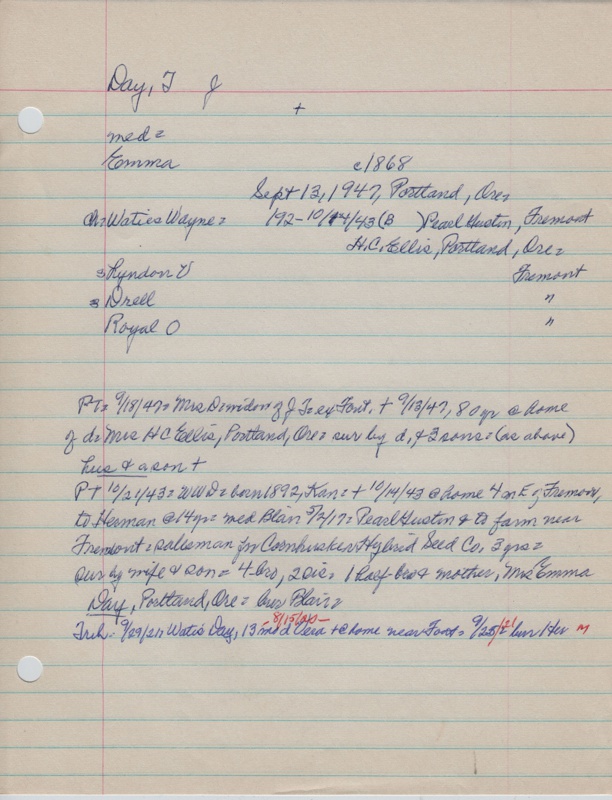 Day, T J
+
med =
Emma c1868
Sept 13, 1947, Portland, Ore =
Ch = Waties Wayne = 192 - 10/14/43 (B ) Pearl Hustin, Fremont
H.C. Ellis, Portland, Ore =
s Lyndon V Fremont
s Drell "
Royal O "
PT = 9/18/47 = Mrs D = widow of J T = ex Font, + 9/13/47, 80 yr @ home
of d = Mrs H C Ellis, Portland, Ore = sur by d, & 3 sons = (as above)
hus & a son +
PT 10/21/43 = WWD = born 1892, Kan = + 10/14/43 @ home 4 m E of Fremont,
to Herman @ 14 yr = med Blair 3/2/17 = Pearl Hustin & to farm near
Fremont = salesman for Cornhusker Hybrid Seed Co, 3 yrs =
sur by wife & son = 4 bro, 2 sis = 1 half bro & mother, Mrs Emma
Day, Portland, Ore = bur Blair =
- 8/15/20 -
Trib = 9/29/21 = Waties Day, 13 m d + @ home near Font = 9/25/21 bur Her M